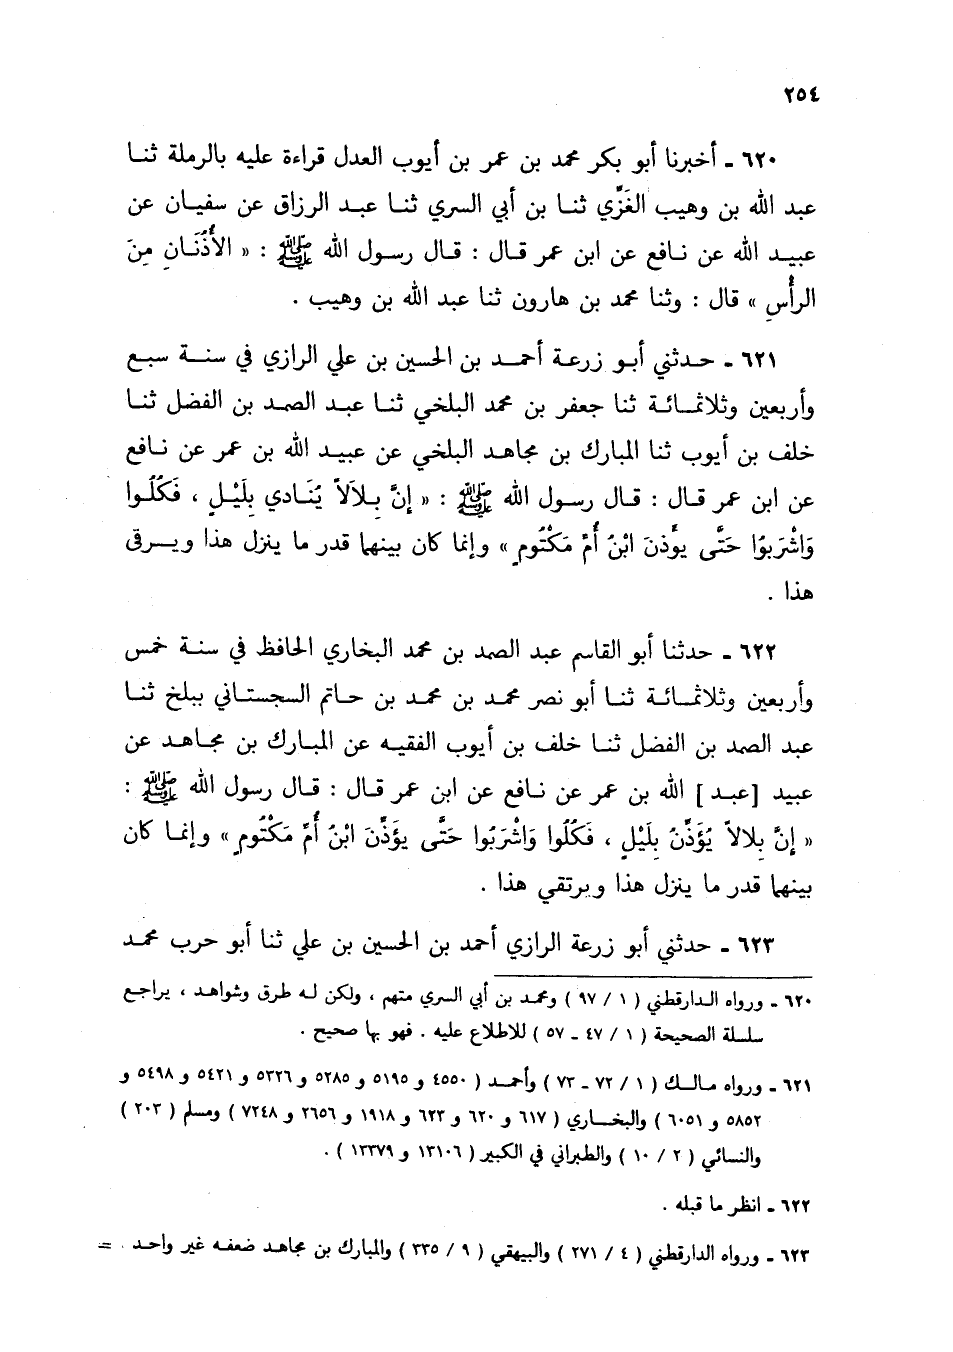 ٢٥٤
٦٢٠ ـ أخبرنا أبو بكر محمد بن عمر بن أيوب العدل قراءة عليه بالرملة ثنا
عبد الله بن وهيب الغَزِّي ثنا بن أبي السري ثنا عبد الرزاق عن سفيان عن
عبيد الله عن نافع عن ابن عمر قال : قال رسول الله ﷺ : « الأُذُنَانِ مِنَ
الرأْسِ » قال : وثنا محمد بن هارون ثنا عبد الله بن وهيب .
٦٢١ ـ حدثني أبو زرعة أحمد بن الحسين بن علي الرازي في سنة سبع
وأربعين وثلاثمائة ثنا جعفر بن محمد البلخي ثنا عبد الصمد بن الفضل ثنا
خلف بن أيوب ثنا المبارك بن مجاهد البلخي عن عبيد الله بن عمر عن نافع
عن ابن عمر قال : قال رسول الله ﷺ : « إِنَّ بِلاَلاً يُنَادي بِلَيْلٍ ، فَكُلُوا
وَاشْرَبوُا حَتَّى يؤَذنَ ابْنُ أُمِّ مَكْتُومٍ » وإنما كان بينهما قدر ما ينزل هذا ويرقى
هذا .
٦٢٢ ـ حدثنا أبو القاسم عبد الصمد بن محمد البخاري الحافظ في سنة خمس
وأربعين وثلاثمائة ثنا أبو نصر محمد بن محمد بن حاتم السجستاني ببلخ ثنا
عبد الصمد بن الفضل ثنا خلف بن أيوب الفقيه عن المبارك بن مجاهد عن
عبيد [ عبد ] الله بن عمر عن نافع عن ابن عمر قال : قال رسول الله ﷺ :
« إِنَّ بِلالاً يُؤَذِّنُ بِلَيْلٍ ، فَكُلُوا وَاشْرَبُوا حَتَّى يؤَذِّنَ ابْنُ أُمِّ مَكْتُومٍ » وإنما كان
بينهما قدر ما ينزل هذا ويرتقي هذا .
٦٢٣ ـ حدثني أبو زرعة الرازي أحمد بن الحسين بن علي ثنا أبو حرب محمد
٦٢٠ ـ ورواه الدارقطني ( ١ / ٩٧ ) ومحمد بن أبي السري متهم ، ولكن له طرق وشواهد ، يراجع
سلسلة الصحيحة ( ١ / ٤٧ ـ ٥٧ ) للاطلاع عليه . فهو بها صحيح .
٦٢١ ـ ورواه مالك ( ١ / ٧٢ ـ ٧٣ ) وأحمد ( ٤٥٥٠ و ٥١٩٥ و ٥٢٨٥ و ٥٣٢٦ و ٥٤٢١ و ٥٤٩٨ و
٥٨٥٢ و ٦٠٥١ ) والبخاري ( ٦١٧ و ٦٢٠ و ٦٢٣ و ١٩١٨ و ٢٦٥٦ و ٧٢٤٨ ) ومسلم ( ٢٠٣ )
والنسائي ( ٢ / ١٠ ) والطبراني في الكبير ( ١٣١٠٦ و ١٣٣٧٩ ) .
٦٢٢ ـ انظر ما قبله .
٦٢٣ ـ ورواه الدارقطني ( ٤ / ٢٧١ ) والبيهقي ( ٩ / ٣٣٥ ) والمبارك بن مجاهد ضعفه غير واحد . =